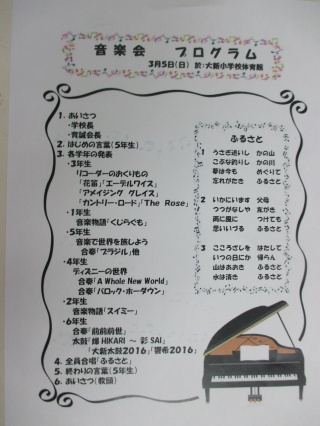 音楽会 プログラム
3月5日(日) 於:大新小学校体育館
1. あいさつ
・学校長
・育誠会長
2. はじめの言葉(5年生)
3. 各学年の発表
・3年生
リコーダーのおくりもの
「花笛」「エーデルワイス」
「アメイジング グレイス」
「カントリー・ロード」「The Rose」
・1年生
音楽物語「くじらぐも」
・5年生
音楽で世界を旅しよう
合奏「ブラジル」他
・4年生
ディズニーの世界
合奏「A Whole New World」
合奏「バロック・ホーダウン」
・2年生
音楽物語「スイミー」
・6年生
合奏「前前前世」
太鼓「輝HIKARI ~ 彩 SAI」
「大新太鼓2016」「響希2016」
4. 全員合唱「ふるさと」
5. 終わりの言葉(5年生)
6. あいさつ(教頭)
ふるさと
1 うさぎ追いし かの山
こぶな釣りし かの川
夢は今も めぐりて
忘れがたき ふるさと
2 いかにいます 父母
つつがなしや 友がき
雨に風に つけても
思いいづる ふるさと
3 こころざしを はたして
いつの日にか 帰らん
山はあおき ふるさと
水は清き ふるさと